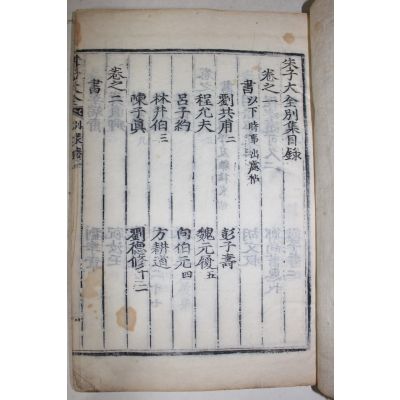 朱子大全別集目錄
卷之一
書 以下時事出處帖
劉共甫二 彭子壽
程允夫 魏元履五
呂子約 向伯元四
林井伯三 方耕道
陳子眞 劉德修十二
卷之二
書
朱子大全 別集目錄